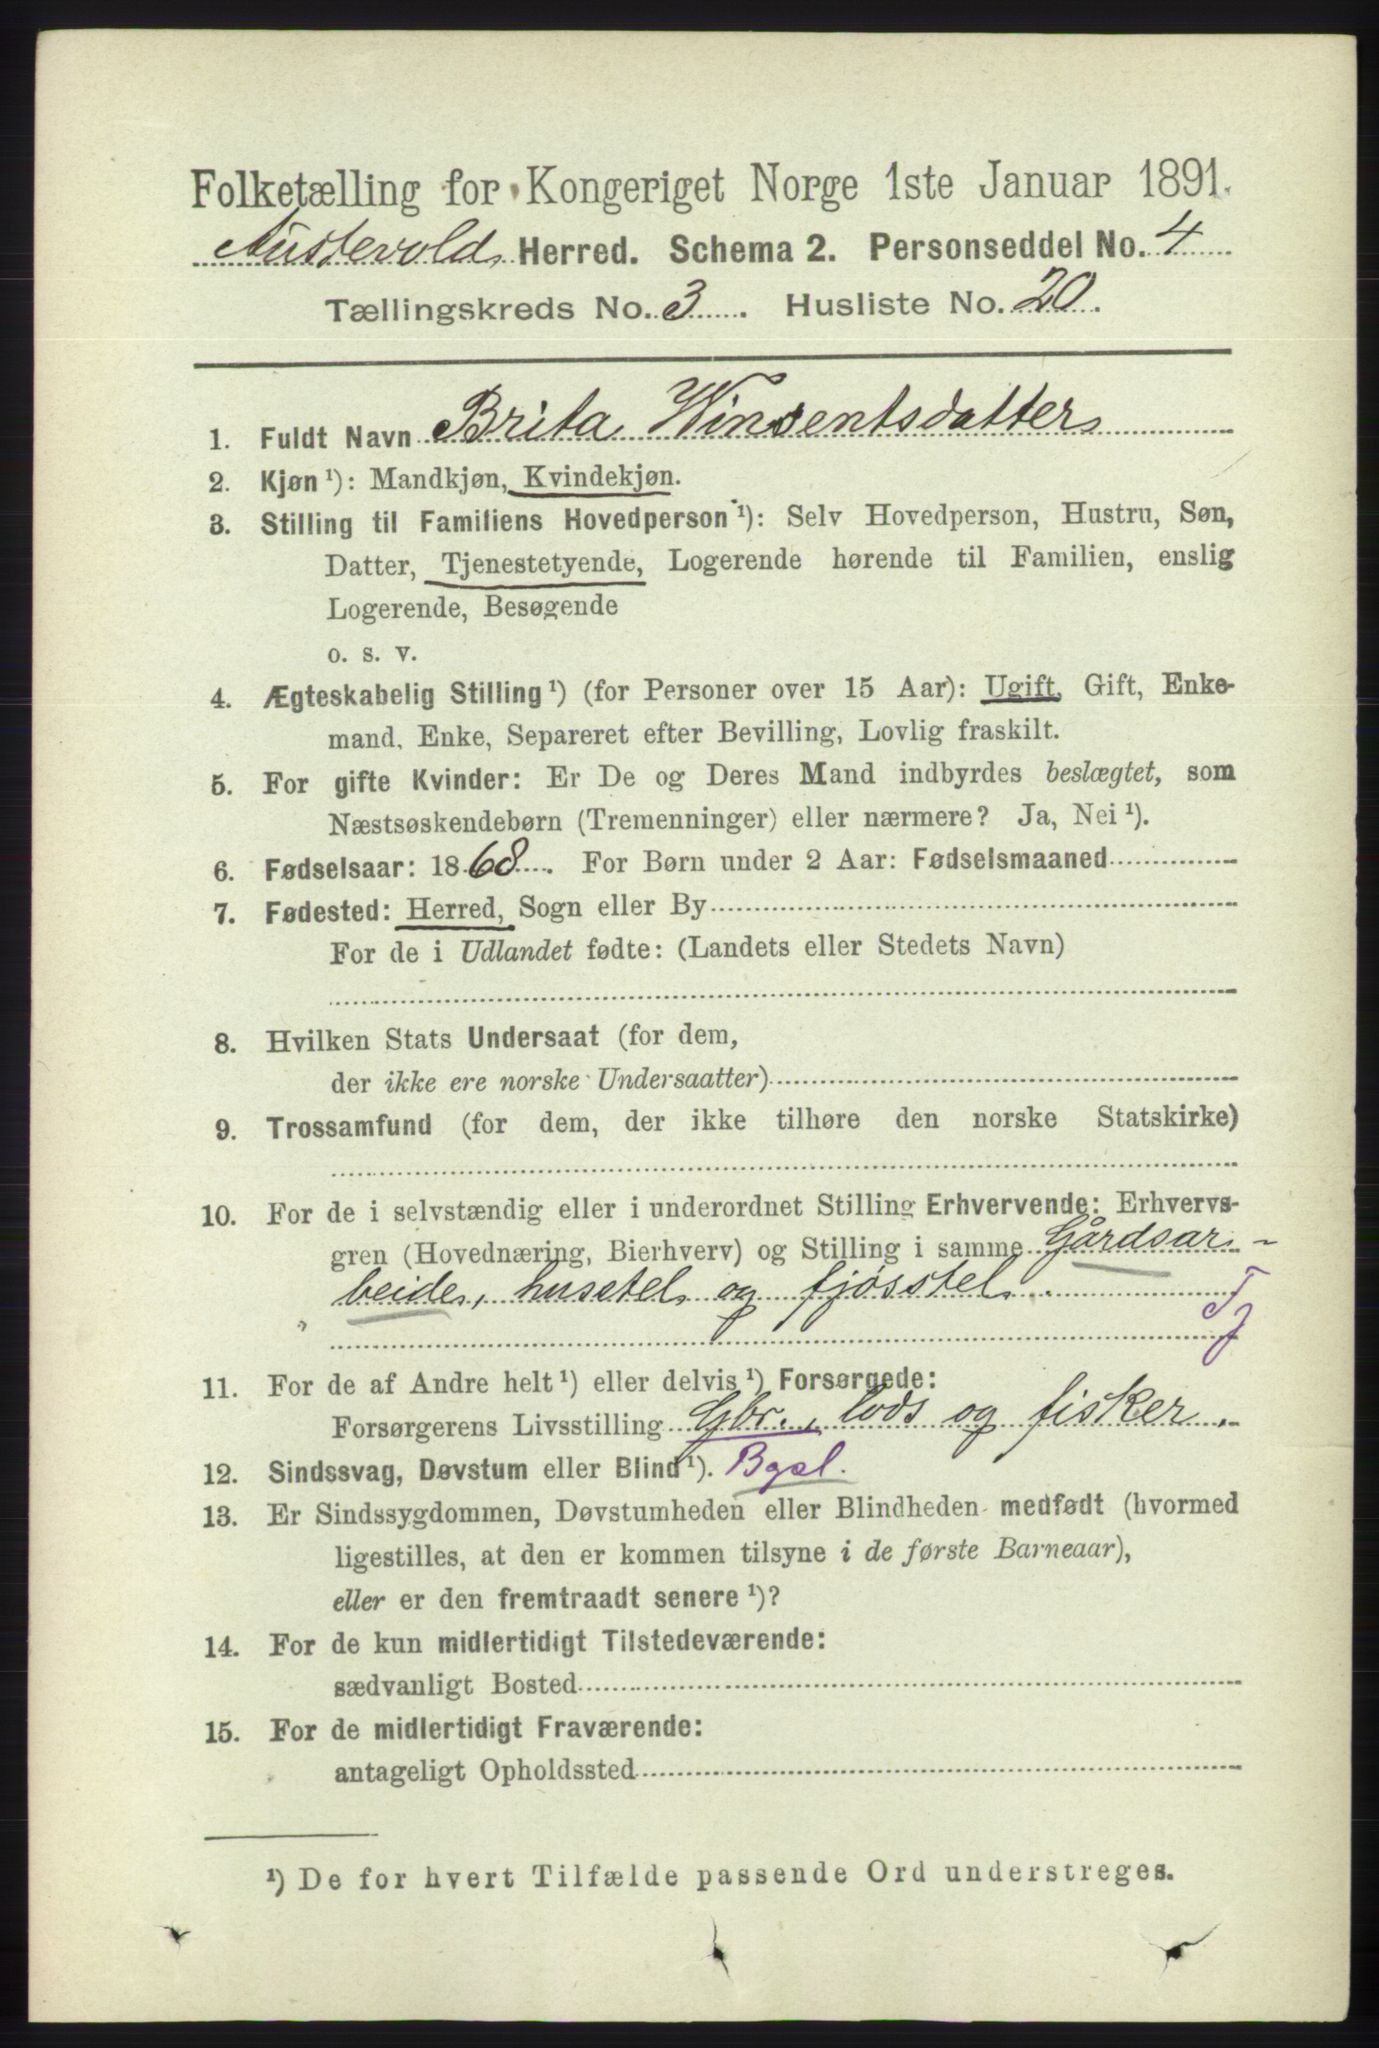 Folketælling for Kongeriget Norge 1ste Januar 1891.
Austevold Herred. Schema 2. Personseddel No. 4
Tællingskreds No. 3. Husliste No. 20.
1. Fuldt Navn Brita Winsentsdatter
2. Kjøn ¹): Mandkjøn, Kvindekjøn.
3. Stilling til Familiens Hovedperson ¹): Selv Hovedperson, Hustru, Søn,
Datter, Tjenestetyende, Logerende hørende til Familien, enslig
Logerende, Besøgende
o. s. v.
4. Ægteskabelig Stilling ¹) (for Personer over 15 Aar): Ugift, Gift, Enke-
mand, Enke, Separeret efter Bevilling, Lovlig fraskilt.
5. For gifte Kvinder: Er De og Deres Mand indbyrdes beslægtet, som
Næstsøskendebørn (Tremenninger) eller nærmere? Ja, Nei ¹).
6. Fødselsaar: 1868. For Børn under 2 Aar: Fødselsmaaned
7. Fødested: Herred, Sogn eller By
For de i Udlandet fødte: (Landets eller Stedets Navn)
8. Hvilken Stats Undersaat (for dem,
der ikke ere norske Undersaatter)
9. Trossamfund (for dem, der ikke tilhøre den norske Statskirke)
10. For de i selvstændig eller i underordnet Stilling Erhvervende: Erhvervs-
gren (Hovednæring, Bierhverv) og Stilling i samme Gårdsar-
beide, husstel og fjøsstel.
Tj
11. For de af Andre helt ¹) eller delvis ¹) Forsørgede:
Forsørgerens Livsstilling Gbr., lods og fisker.
12. Sindssvag, Døvstum eller Blind ¹). Bgsl.
13. Er Sindssygdommen, Døvstumheden eller Blindheden medfødt (hvormed
ligestilles, at den er kommen tilsyne i de første Barneaar),
eller er den fremtraadt senere ¹)?
14. For de kun midlertidigt Tilstedeværende:
sædvanligt Bosted
15. For de midlertidigt Fraværende:
antageligt Opholdssted
¹) De for hvert Tilfælde passende Ord understreges.